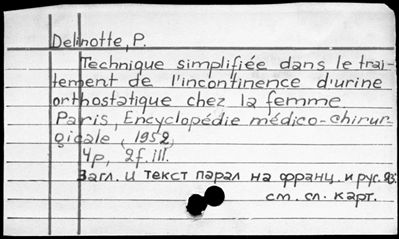 Delinotte, P.
Technique simplifiée dans le trai-
tement de l'incontinence d'urine
orthostatique chez la femme.
Paris, Encyclopédie médico-chirur-
gicale, 1952,
4p, 2f. ill.
Загл. и текст парал на франц. и рус. яз.
см. сл. карт.